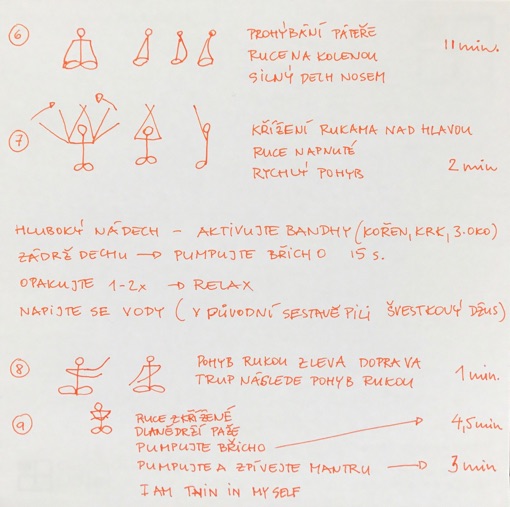 6 PROHÝBÁNÍ PÁTEŘE 11 min.
RUCE NA KOLENOU
SILNÝ DECH NOSEM
7 KŘÍŽENÍ RUKAMA NAD HLAVOU
RUCE NAPNUTÉ
RYCHLÝ POHYB 2 min
HLUBOKÝ NÁDECH – AKTIVUJTE BANDHY (KOŘEN, KRK, 3. OKO)
ZÁDRŽ DECHU → PUMPUJTE BŘICHO 15 s.
OPAKUJTE 1-2x → RELAX
NAPIJTE SE VODY (V PŮVODNÍ SESTAVĚ PILI ŠVESTKOVÝ DŽUS)
8 POHYB RUKOU ZLEVA DOPRAVA 1 min.
TRUP NÁSLEDE POHYB RUKOU
9 RUCE ZKŘÍŽENÉ 4,5 min
DLANĚ DRŽÍ PAŽE
PUMPUJTE BŘICHO →
PUMPUJTE A ZPÍVEJTE MANTRU → 3 min
I AM THIN IN MYSELF